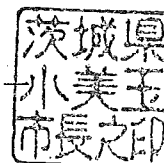 茨城県
小美玉
市長之印